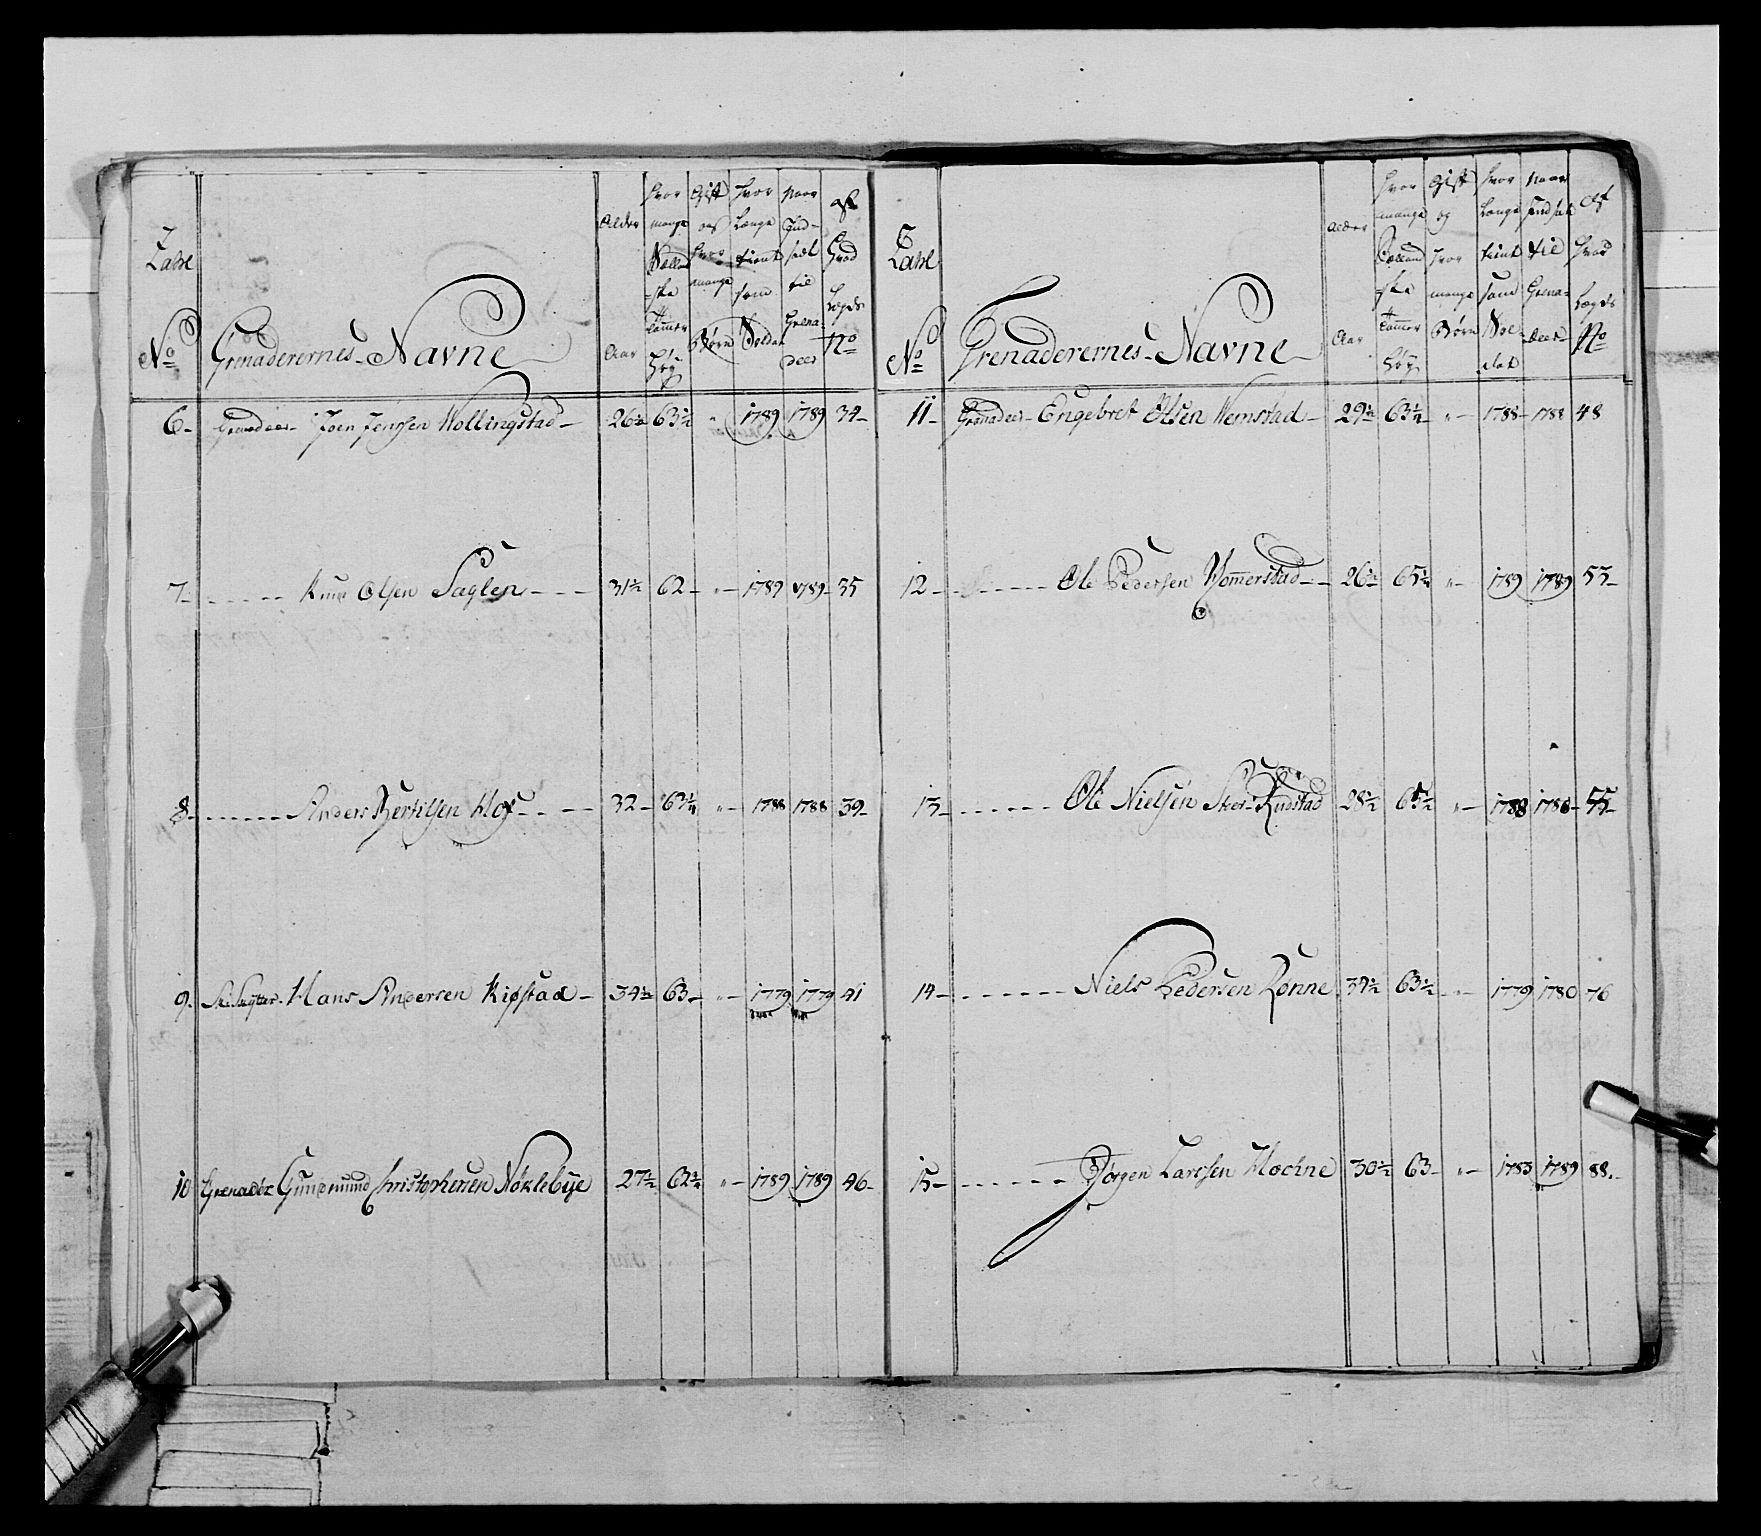 Tahl No Grenaderernes Navne Alder Aar Hvor mange Tolland ske Tommer Høy Gift og Hvor mange Børn Hvor Længe tient som Soldat Naar Indsat til Grenadeer Af Hvad Lægds No
6 Grenadeer Joen Jenssen Wollingstad 26½ 63½ " 1789 1789 34
7 Knud Olsen Saglen 31½ 62 " 1789 1789 35
8 Anders Bertilsen Hof 32 63¼ " 1788 1788 39
9 Hans Andersen Kiøstad 34½ 63 " 1779 1779 41
10 Grenadeer Gundmund Christophersen Nøklebye 27½ 62¾ " 1789 1789 46
Tahl No Grenaderernes Navne Alder Aar Hvor mange Tolland ske Tommer Høy Gift og Hvor mange Børn Hvor Længe tient som Soldat Naar Indsat til Grenadeer Af Hvad Lægds No
11 Grenadeer Engebret Olsen Hemstad 29½ 63¼ " 1788 1788 48
12 Ole Pedersen Hommerstad 26½ 65¼ " 1789 1789 53
13 Ole Nielsen Stor Rudstad 28½ 65½ " 1788 1788 55
14 Niels Pedersen Rønne 39½ 63½ " 1779 1780 76
15 Jørgen Larssen Hochne 30½ 63 " 1783 1789 88